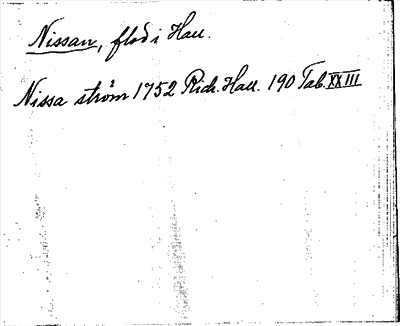 Nissan, flod i Hall.
Nissa ström 1752 Rich. Hall. 190 Tab. XXIII